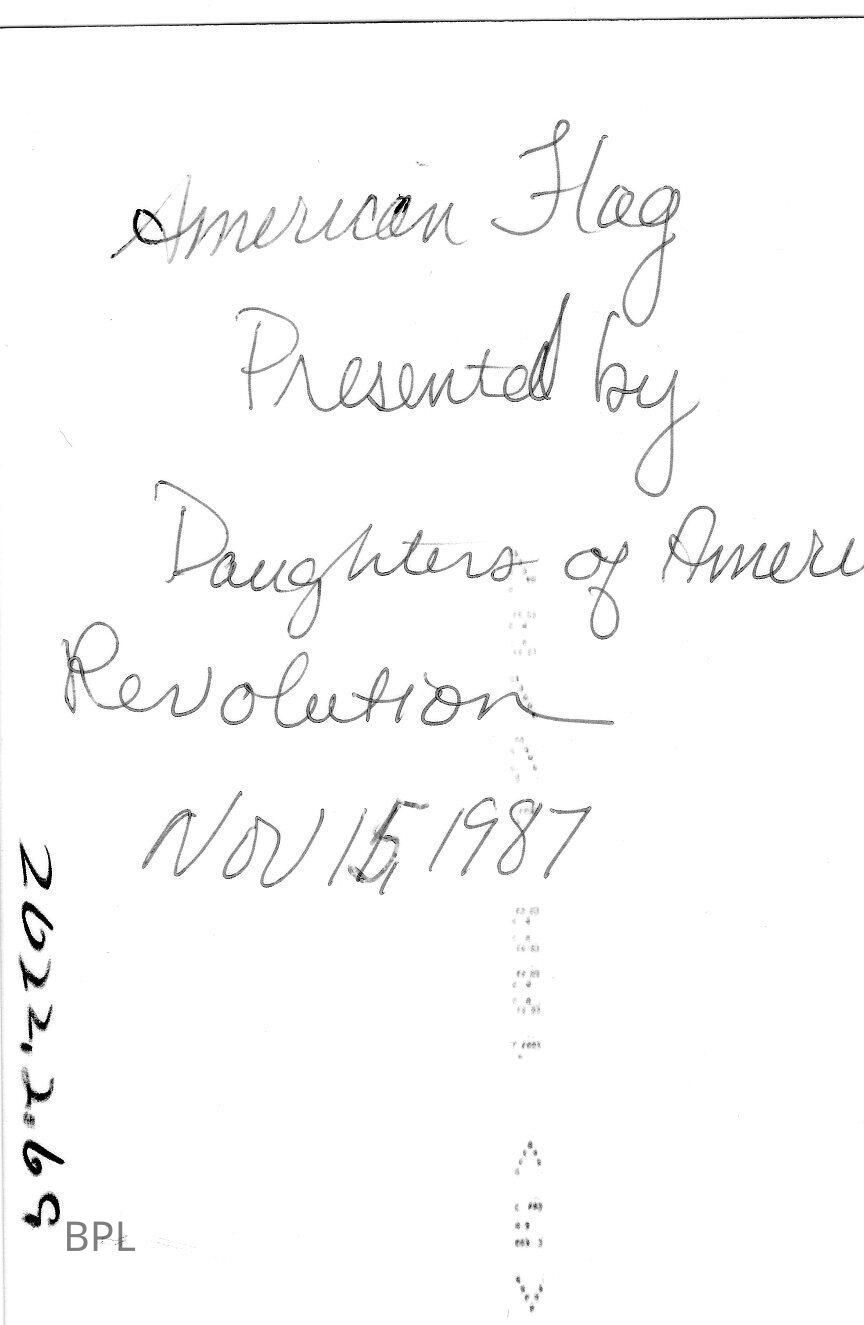 American Flag
Presented by
Daughters of Ameri
Revolution
Nov 15, 1987
2022.2.69
BPL